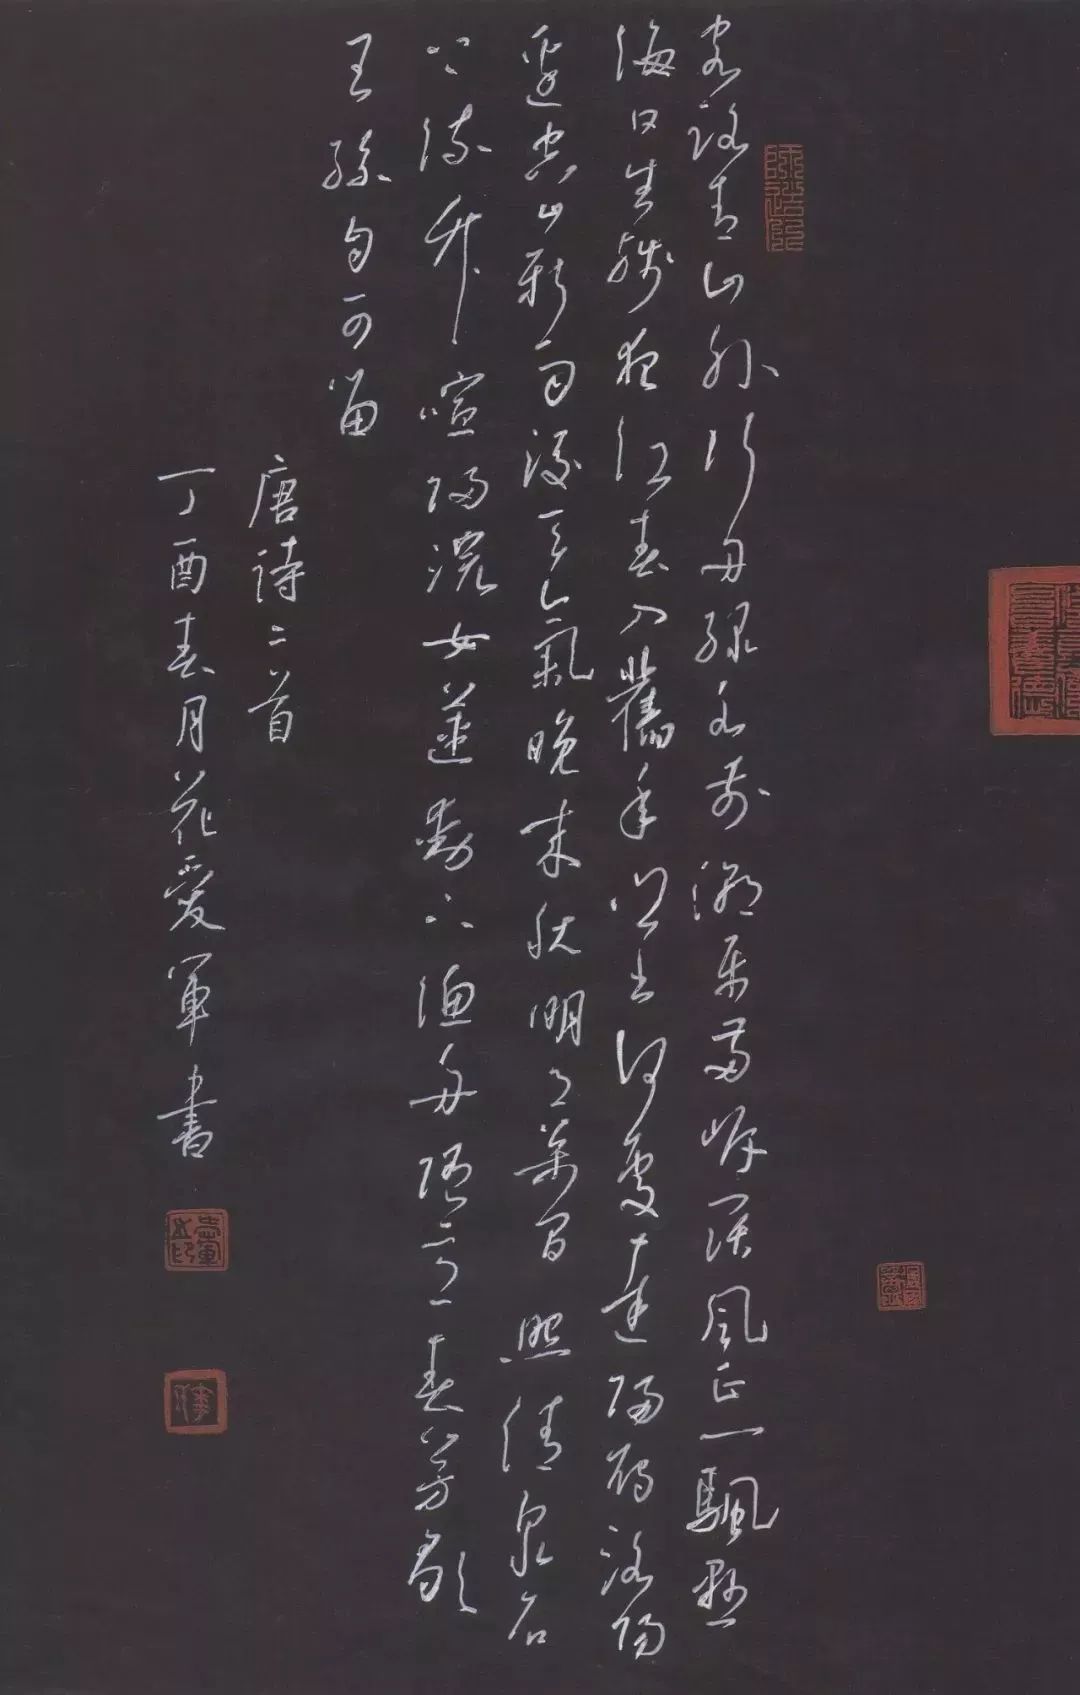 師造化
客路青山外行舟綠水前潮平兩岸闊風正一颿懸
海日生殘夜江春入舊年鄉書何處達歸雁洛陽
邊空山新雨後天氣晚來秋明月松間照清泉石
上流竹喧歸浣女蓮動下漁舟隨意春芳歇
王孫自可留
唐詩二首
丁酉春月花愛軍書